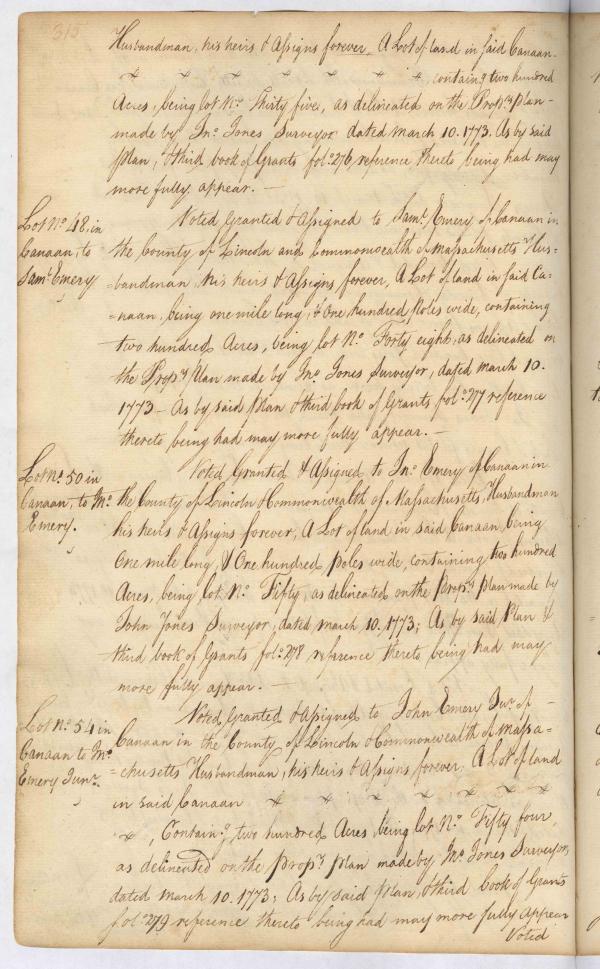 315
Husbandman, his heirs & Assigns forever. A Lot of land in said Canaan
containg. two hundred
Acres, being lot No. Thirty five, as delineated on the Props. Plan
made by Jno. Jones Surveyor dated March 10. 1773. As by said
Plan, & third book of Grants fol: 276, reference thereto being had may
more fully appear. —
Lot No. 48, in
Canaan, to
Saml. Emery
Voted Granted & Assigned to Saml. Emery of Canaan in
the County of Lincoln and Commonwealth of Massachusetts Hus-
-bandman, his heirs & Assigns forever, A Lot of land in said Ca-
-naan, being one mile long, & One hundred Poles wide, containing
two hundred Acres, being lot No. Forty eight, as delineated on
the Props. Plan made by Jno. Jones Surveyor, dated March 10.
1773 – As by said Plan & third book of Grants fol: 277 reference
thereto being had may more fully appear. —
Lot No. 50 in
Canaan, to Jno.
Emery.
Voted Granted & Assigned to Jno. Emery of Canaan in
the County of Lincoln & Commonwealth of Massachusetts, Husbandman
his heirs & Assigns forever, A Lot of land in said Canaan, being
One mile long, & One hundred poles wide, containing two hundred
Acres, being lot No. Fifty, as delineated on the Props. Plan made by
John Jones Surveyor, dated March 10. 1773; As by said Plan &
third book of Grants fol: 278 reference thereto being had may
more fully appear. —
Lot No. 54 in
Canaan to Jno.
Emery Junr.
Voted, Granted & Assigned to John Emery Junr. of
Canaan in the County of Lincoln & Commonwealth of Massa-
-chusetts Husbandman, his heirs & Assigns forever. A Lot of land
in said Canaan
, Containg. two hundred Acres, being lot No. Fifty four,
as delineated on the Props. Plan made by Jno. Jones Surveyor,
dated March 10. 1773; As by said Plan, & third book of Grants
fol: 279 reference thereto being had may more fully appear
Voted